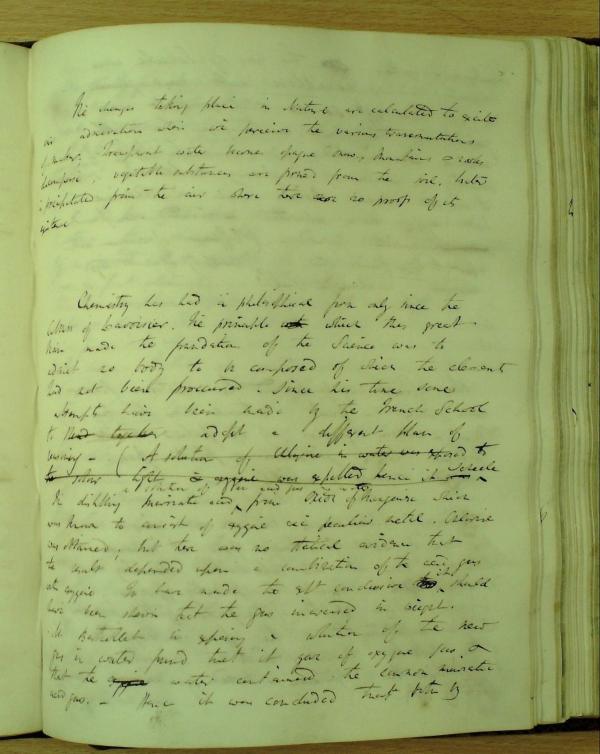 The changes taking place in Nature are calculated to excite
our admiration when we perceive the various transmutations
of matter. Transparent water become opaque snow, Mountains & rocks
decompose, vegetable substances are formed from the soil. Water
is precipitated from the air where there are no proofs of its
existence
Chemistry has had a philosophical form only since the
labours of Lavoisier. The principle which this great
man made the foundation of the Science was to
admit no body to be composed of which the elements
had not been procured. Since his time some
attempts have been made by the French School
to adopt a different plan of
reasoning – (A solution of Chlorine in water was exposed to
the solar light & oxygene was expelled hence it Scheele
a solution of the acid gas in water
In distilling muriatic acid from Oxide of Manganese which
was known to consist of oxygene and peculiar metal. Chlorine
was obtained, but there was no statical evidence that
the result depended upon a combination of the acid gas
with oxygene To have made the expt conclusive it should
have been shown that the gas increased in weight.
M. Berthollet in exposing a solution of the new
gas in water found that it gave off oxygene gas &
that the water contained the common muriatic
acid gas. – Hence it was concluded that both by